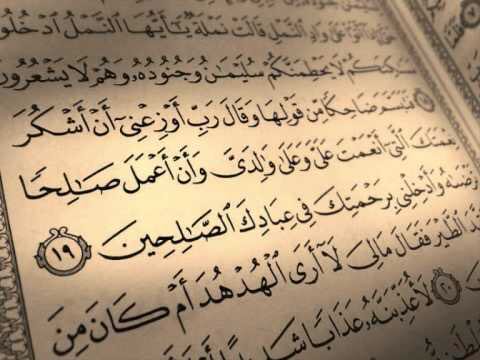 عَلَىٰ وَادِ ٱلنَّمْلِ قَالَتْ نَمْلَةٌ يَٰٓأَيُّهَا ٱلنَّمْلُ ٱدْخُلُوا۟
مَسَٰكِنَكُمْ لَا يَحْطِمَنَّكُمْ سُلَيْمَٰنُ وَجُنُودُهُۥ وَهُمْ لَا يَشْعُرُونَ
١٨ فَتَبَسَّمَ ضَاحِكًا مِّن قَوْلِهَا وَقَالَ رَبِّ أَوْزِعْنِىٓ أَنْ أَشْكُرَ
نِعْمَتَكَ ٱلَّتِىٓ أَنْعَمْتَ عَلَىَّ وَعَلَىٰ وَٰلِدَىَّ وَأَنْ أَعْمَلَ صَٰلِحًا
تَرْضَىٰهُ وَأَدْخِلْنِى بِرَحْمَتِكَ فِى عِبَادِكَ ٱلصَّٰلِحِينَ ١٩
ٱلطَّيْرَ فَقَالَ مَالِىَ لَآ أَرَى ٱلْهُدْهُدَ أَمْ كَانَ مِنَ
٢٠ لَأُعَذِّبَنَّهُۥ عَذَابًا شَدِيدًا